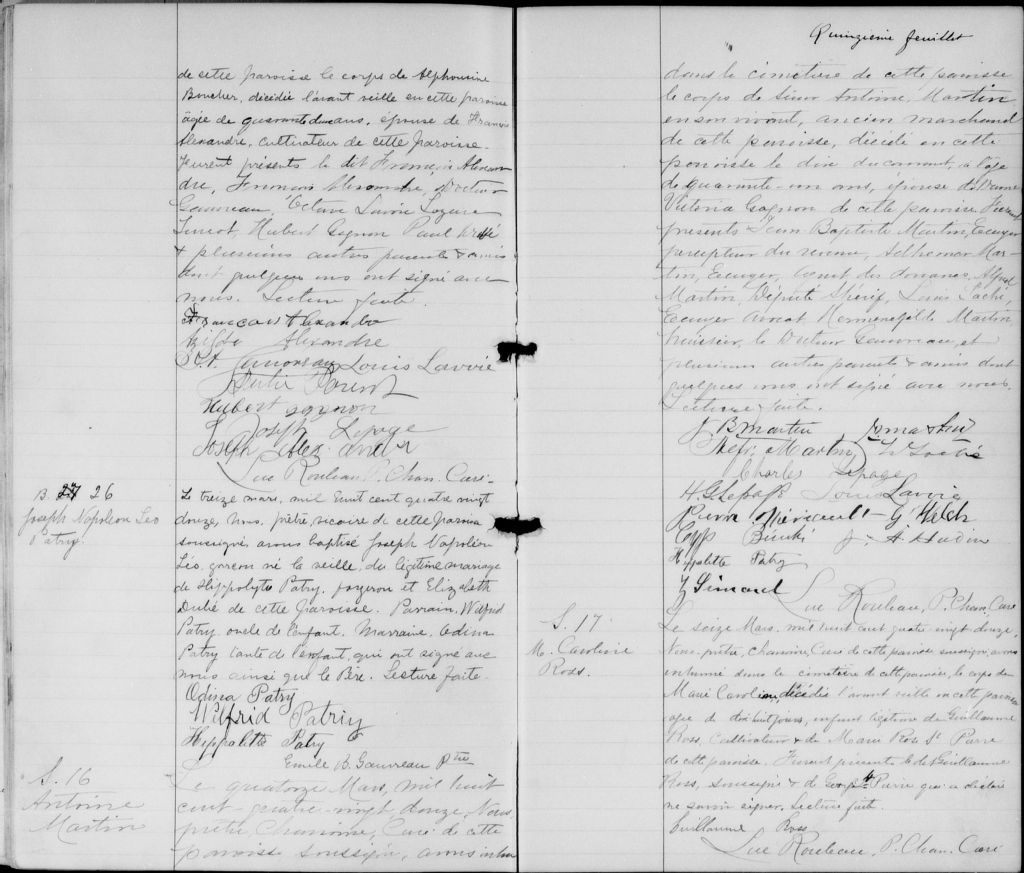 de cette paroisse le corps de Alphonsine
Boucher, décédée l'avant veille en cette paroisse
âgée de quarante deux ans, épouse de François
Alexandre, cultivateur de cette paroisse.
Furent présents le dit François Alexan-
dre, François Alexandre, Docteur
Gauvreau, Octave Lavoie Lazare
Hubert Gagnon Paul
& plusieurs autres parents & amis
dont quelques uns ont signé avec
nous. Lecture faite.
Francois Alexandre
Alexandre
Gauvreau Louis Lavoie
Parent
Hubert gagnon
Joseph Lepage
Joseph Alexandre
Luc Rouleau P. Chan. Curé.
B. 26
Joseph Napoléon Léo
Patry.
Le treize mars, mil huit cent quatre vingt
douze, Nous, prêtre, vicaire de cette paroisse
soussigné, avons baptisé Joseph Napoléon
Léo, garçon né la veille, du légitime mariage
de Hippolyte Patry, forgeron et Elizabeth
Dubé de cette paroisse. Parrain, Wilfrid
Patry oncle de l'enfant. Marraine, Odina
Patry tante de l'enfant, qui ont signé avec
nous ainsi que le Père. Lecture faite.
Odina Patry
Wilfrid Patry
Hippolitte Patry
Emile B. Gauvreau Ptre
S. 16
Antoine
Martin
Le quatorze Mars, mil huit
cent quatre-vingt douze, Nous,
prêtre, Chanoine, Curé de cette
paroisse soussigné, avons inhumé
Quinzième feuillet
dans le cimetière de cette paroisse
le corps de Sieur Antoine Martin
en son vivant, ancien marchand
de cette paroisse, décédé en cette
paroisse le dix du courant, à l'âge
de quarante-un ans, époux de Dame
Victoria Gagnon de cette paroisse. Furent
présents Jean Baptiste Martin, Ecuyer
percepteur du revenu, Adhemar Mar-
tin, Ecuyer, Agent des douanes, Alfred
Martin, Député Shérif, Louis Taché,
Ecuyer Avocat Hermenegilde Martin
huissier, le Docteur Gauvreau, et
plusieurs autres parents & amis dont
quelques uns ont signé avec nous.
Lecture faite.
J B Martin
Martin
Charles Lepage
H. G. Lepage Louis Lavoie
Pierre
J. A.
Hippolitte Patry
Y Simard
Luc Rouleau, P. Chan. Curé
S. 17
M. Caroline
Ross.
Le seize Mars, mil huit cent quatre vingt douze,
Nous prêtre, Chanoine, Curé de cette paroisse soussigné, avons
inhumé dans le cimetière de cette paroisse, le corps de
Marie Caroline, décédée l'avant veille en cette paroisse
agée de dix huit jours, enfant légitime de Guillaume
Ross, Cultivateur & de Marie Rose St Pierre
de cette paroisse. Furent présents le dit Guillaume
Ross, soussigné & de George St Pierre qui a déclaré
ne savoir signer. Lecture faite.
Guillaume Ross
Luc Rouleau, P. Chan. Curé